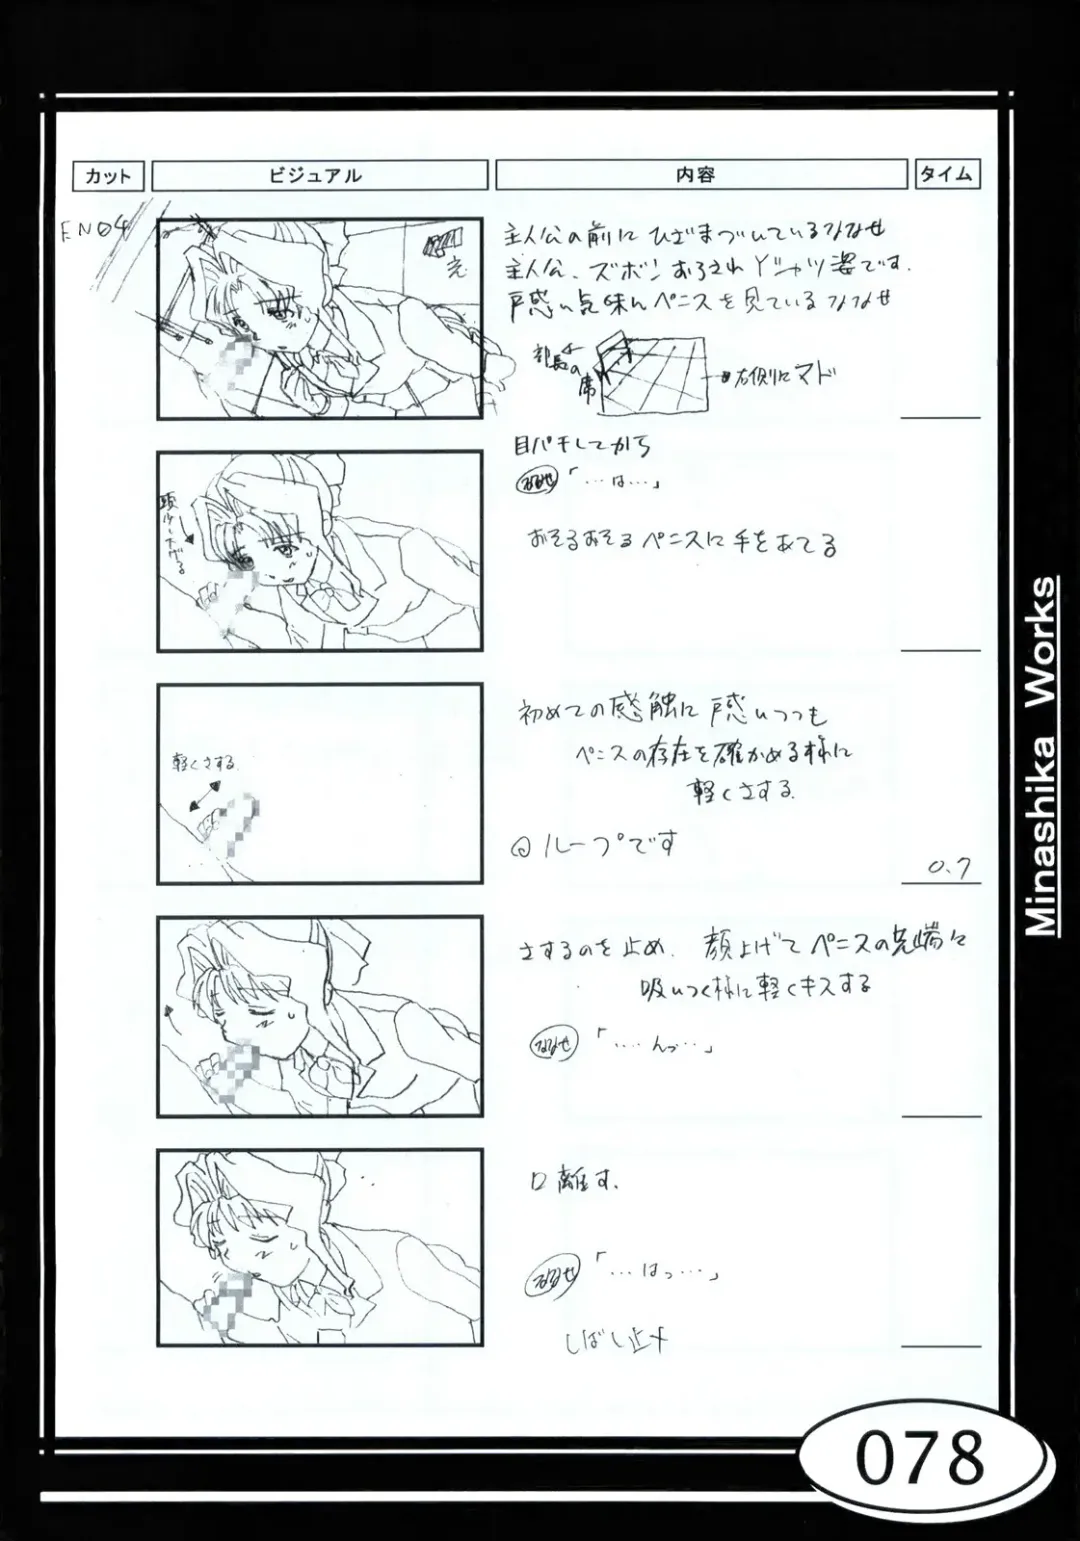 カット
ビジュアル
内容
タイム
EN04
主人公の前にひざまづいているななせ
主人公、ズボンおろされYシャツ姿です.
戸惑い気味にペニスを見ているななせ
部長の席
右側にマド
目パチしてから
ななせ 「…は…」
頭少し下げる
おそるおそるペニスに手をあてる
初めての感触に戸惑いつつも
ペニスの存在を確かめる様に
軽くさする.
軽くさする
ループです
0.7
さするのを止め、顔上げてペニスの先端に
吸いつく様に軽くキスする
ななせ 「‥‥んっ‥」
口離す.
ななせ 「…はっ…」
しばし止メ
Minashika Works
078